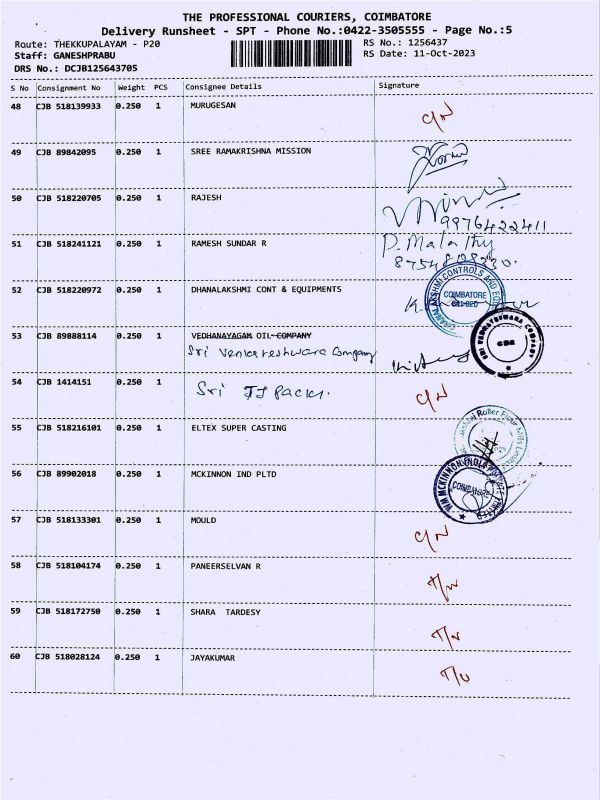 THE PROFESSIONAL COURIERS, COIMBATORE
Delivery Runsheet - SPT - Phone No.:0422-3505555 - Page No.:5
Route: THEKKUPALAYAM - P20 RS No.: 1256437
Staff: GANESHPRABU RS Date: 11-Oct-2023
DRS No.: DCJB125643705
S No Consignment No Weight PCS Consignee Details Signature
48 CJB 518139933 0.250 1 MURUGESAN C/N
49 CJB 89842095 0.250 1 SREE RAMAKRISHNA MISSION
50 CJB 518220705 0.250 1 RAJESH
9976422411
51 CJB 518241121 0.250 1 RAMESH SUNDAR R P. Malathy
52 CJB 518220972 0.250 1 DHANALAKSHMI CONT & EQUIPMENTS
COIMBATORE
53 CJB 89888114 0.250 1 VEDHANAYAGAM OIL COMPANY
Sri Venkateshwara Company
54 CJB 1414151 0.250 1 Sri JJ Packs. C/N
55 CJB 518216101 0.250 1 ELTEX SUPER CASTING
Roller Flour Mills Limited
56 CJB 89902018 0.250 1 MCKINNON IND PLTD
COIMBATORE
57 CJB 518133301 0.250 1 MOULD C/N
58 CJB 518104174 0.250 1 PANEERSELVAN R
59 CJB 518172750 0.250 1 SHARA TARDESY
60 CJB 518028124 0.250 1 JAYAKUMAR